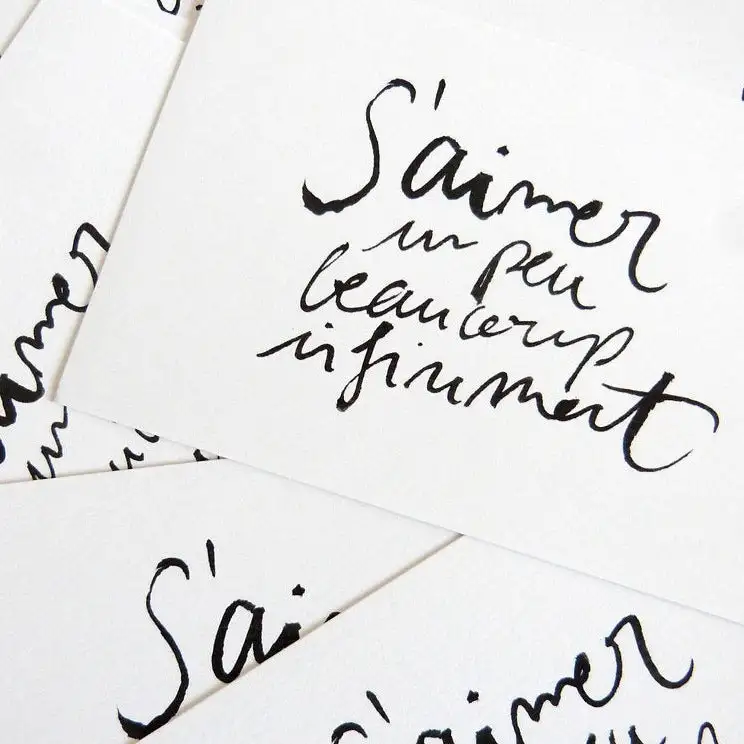 S'aimer
un peu
beaucoup
infiniment
aimer
un
S'ai
S'aimer